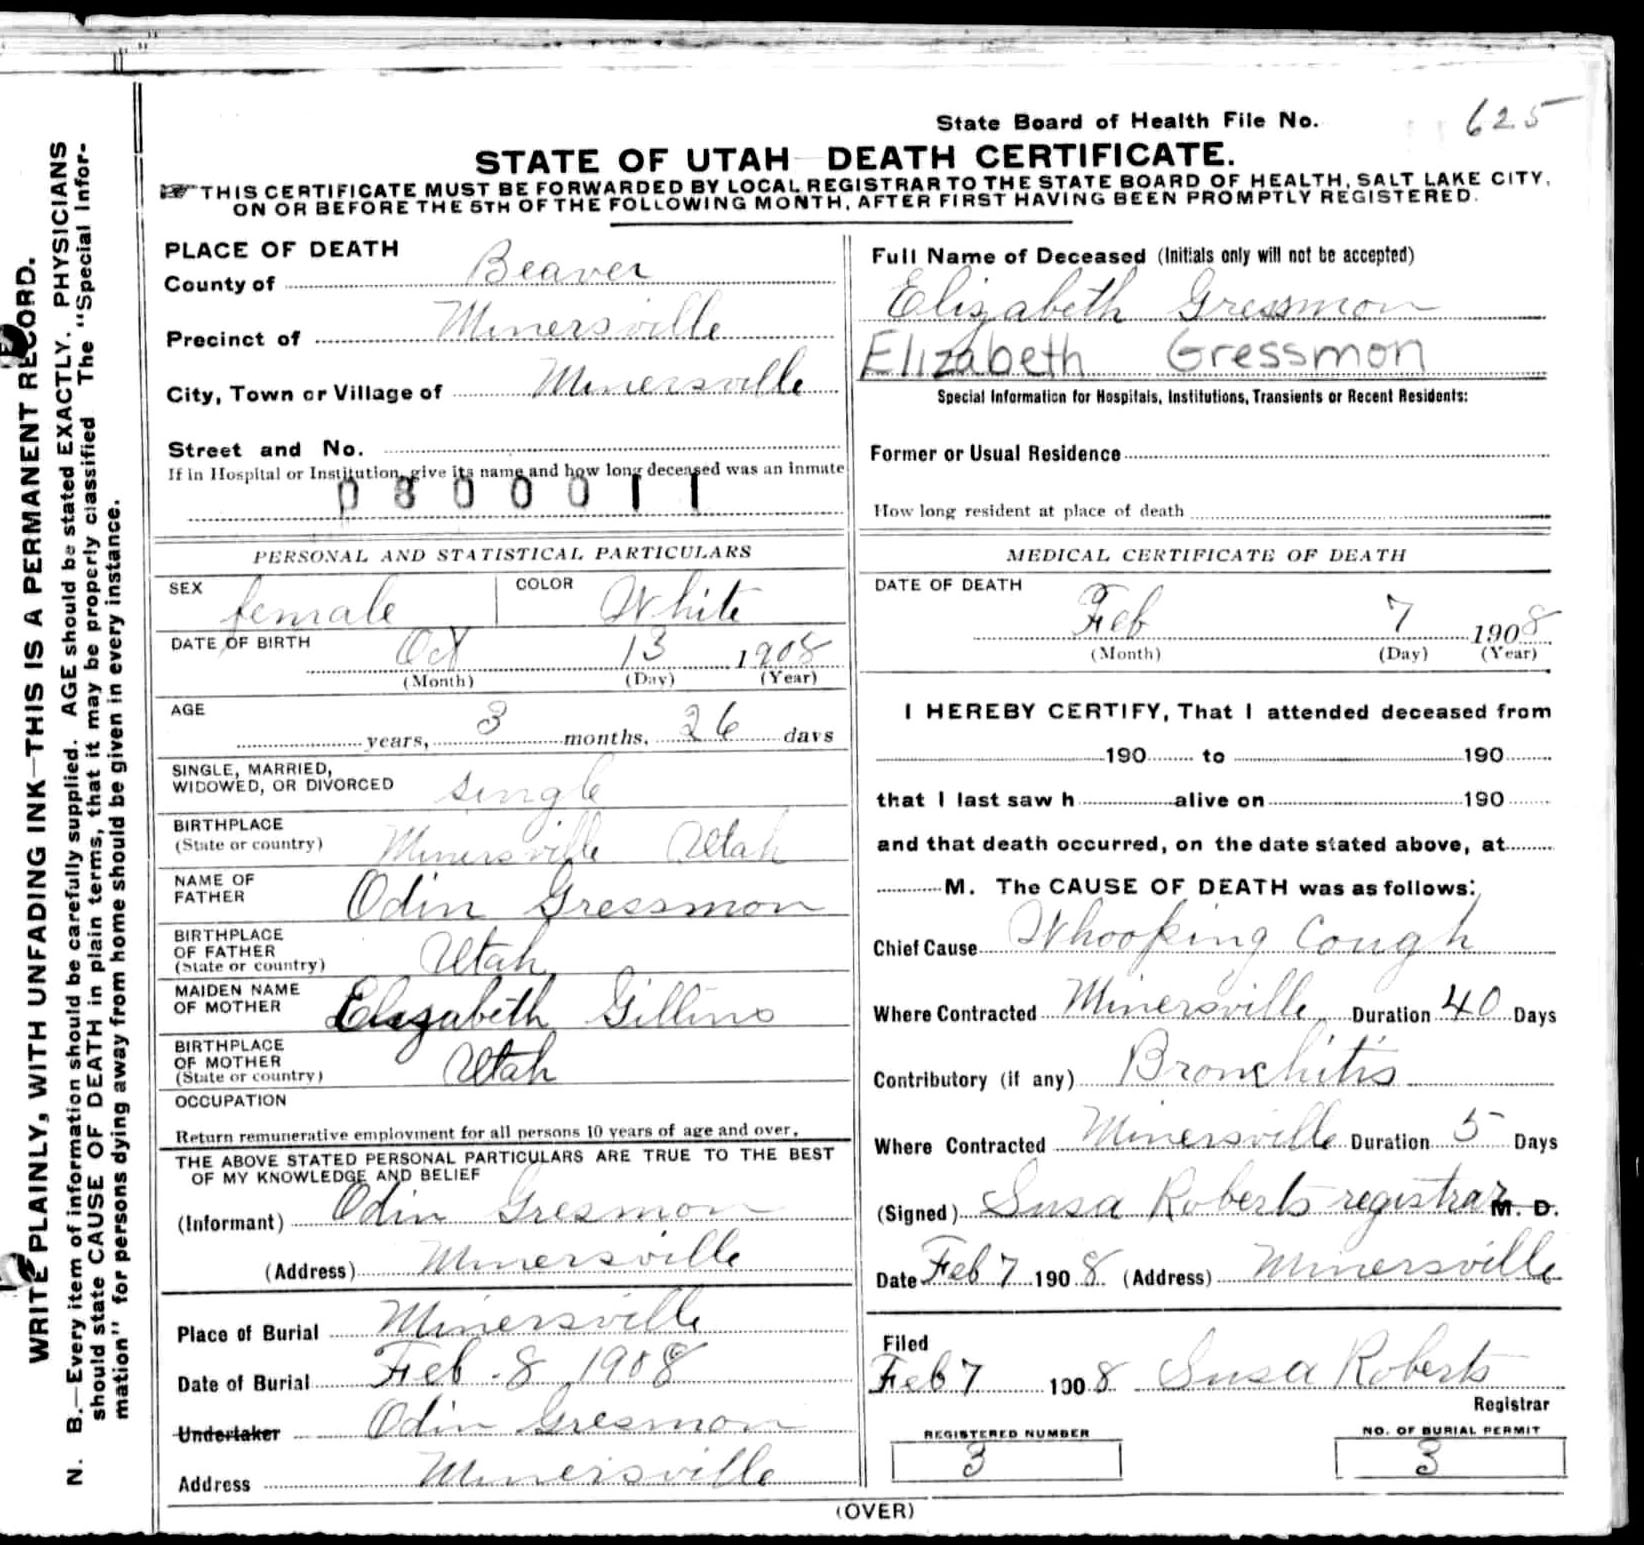 WRITE PLAINLY, WITH UNFADING INK—THIS IS A PERMANENT RECORD.
N. B.—Every item of information should be carefully supplied. AGE should be stated EXACTLY. PHYSICIANS
should state CAUSE OF DEATH in plain terms, that it may be properly classified The "Special Infor-
mation" for persons dying away from home should be given in every instance.
State Board of Health File No. 625
STATE OF UTAH DEATH CERTIFICATE.
THIS CERTIFICATE MUST BE FORWARDED BY LOCAL REGISTRAR TO THE STATE BOARD OF HEALTH, SALT LAKE CITY,
ON OR BEFORE THE 5TH OF THE FOLLOWING MONTH, AFTER FIRST HAVING BEEN PROMPTLY REGISTERED.
PLACE OF DEATH
County of Beaver
Precinct of Minersville
City, Town or Village of Minersville
Street and No.
If in Hospital or Institution, give its name and how long deceased was an inmate
0800011
PERSONAL AND STATISTICAL PARTICULARS
SEX female COLOR White
DATE OF BIRTH Oct 13 1908
(Month) (Day) (Year)
AGE
years, 3 months, 26 days
SINGLE, MARRIED,
WIDOWED, OR DIVORCED single
BIRTHPLACE
(State or country) Minersville Utah
NAME OF
FATHER Odin Gressmon
BIRTHPLACE
OF FATHER
(State or country) Utah
MAIDEN NAME
OF MOTHER Elizabeth Gillins
BIRTHPLACE
OF MOTHER
(State or country) Utah
OCCUPATION
Return remunerative employment for all persons 10 years of age and over.
THE ABOVE STATED PERSONAL PARTICULARS ARE TRUE TO THE BEST
OF MY KNOWLEDGE AND BELIEF
(Informant) Odin Gresmon
(Address) Minersville
Place of Burial Minersville
Date of Burial Feb 8 1908
Undertaker Odin Gresmon
Address Minersville
Full Name of Deceased (Initials only will not be accepted)
Elizabeth Gressmon
Elizabeth Gressmon
Special Information for Hospitals, Institutions, Transients or Recent Residents:
Former or Usual Residence
How long resident at place of death
MEDICAL CERTIFICATE OF DEATH
DATE OF DEATH
Feb 7 1908
(Month) (Day) (Year)
I HEREBY CERTIFY, That I attended deceased from
190 to 190
that I last saw h alive on 190
and that death occurred, on the date stated above, at
M. The CAUSE OF DEATH was as follows:
Chief Cause Whooping Cough
Where Contracted Minersville Duration 40 Days
Contributory (if any) Bronchitis
Where Contracted Minersville Duration 5 Days
(Signed) Susa Roberts registrar M. D.
Date Feb 7 1908 (Address) Minersville
Filed
Feb 7 1908 Susa Roberts
Registrar
REGISTERED NUMBER
3
NO. OF BURIAL PERMIT
3
(OVER)